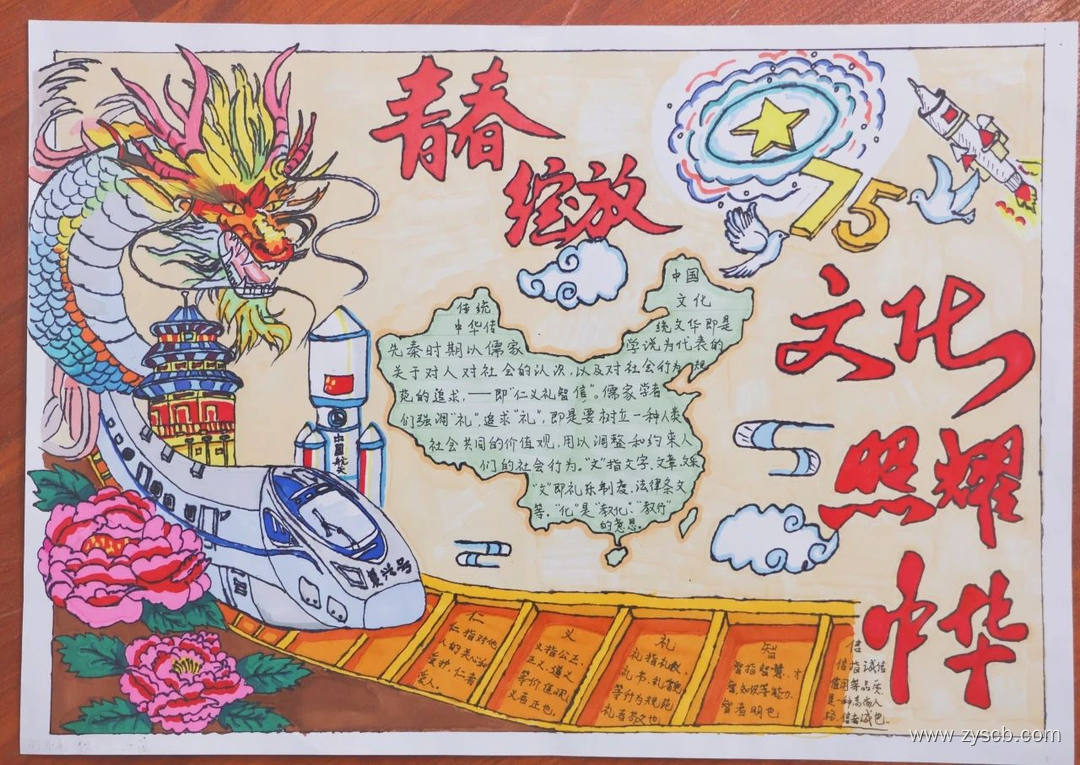 青春
绽放
75
文化
照耀
中华
中国航天
复兴号
传统
中华传
先秦时期以儒家
关于对人对社会的认次,以及对社会行为规
范的追求,——即“仁义礼智信”。儒家学者
们强调“礼”,追求“礼”,即是要树立一种人类
社会共同的价值观,用以调整和约束人
们的社会行为。“文”指文字、文章、文采
“文”即礼乐制度、法律条文
等。“化”是“教化”、“教行”
的意思。
中国
文化
统文华即是
学说为代表的
仁
仁指对他
人的关心和
爱护,仁者
爱人。
义
义指公正、
正义、道义
等价值观,
义者正也。
礼
礼指礼数、
礼书、礼貌
等行为规范
礼者敬也
智
智指智慧、才
智、知识等能力
智者明也
信
信指诚信
信用等品质
是一种高尚人
格,信者诚也。
www.zyscb.com